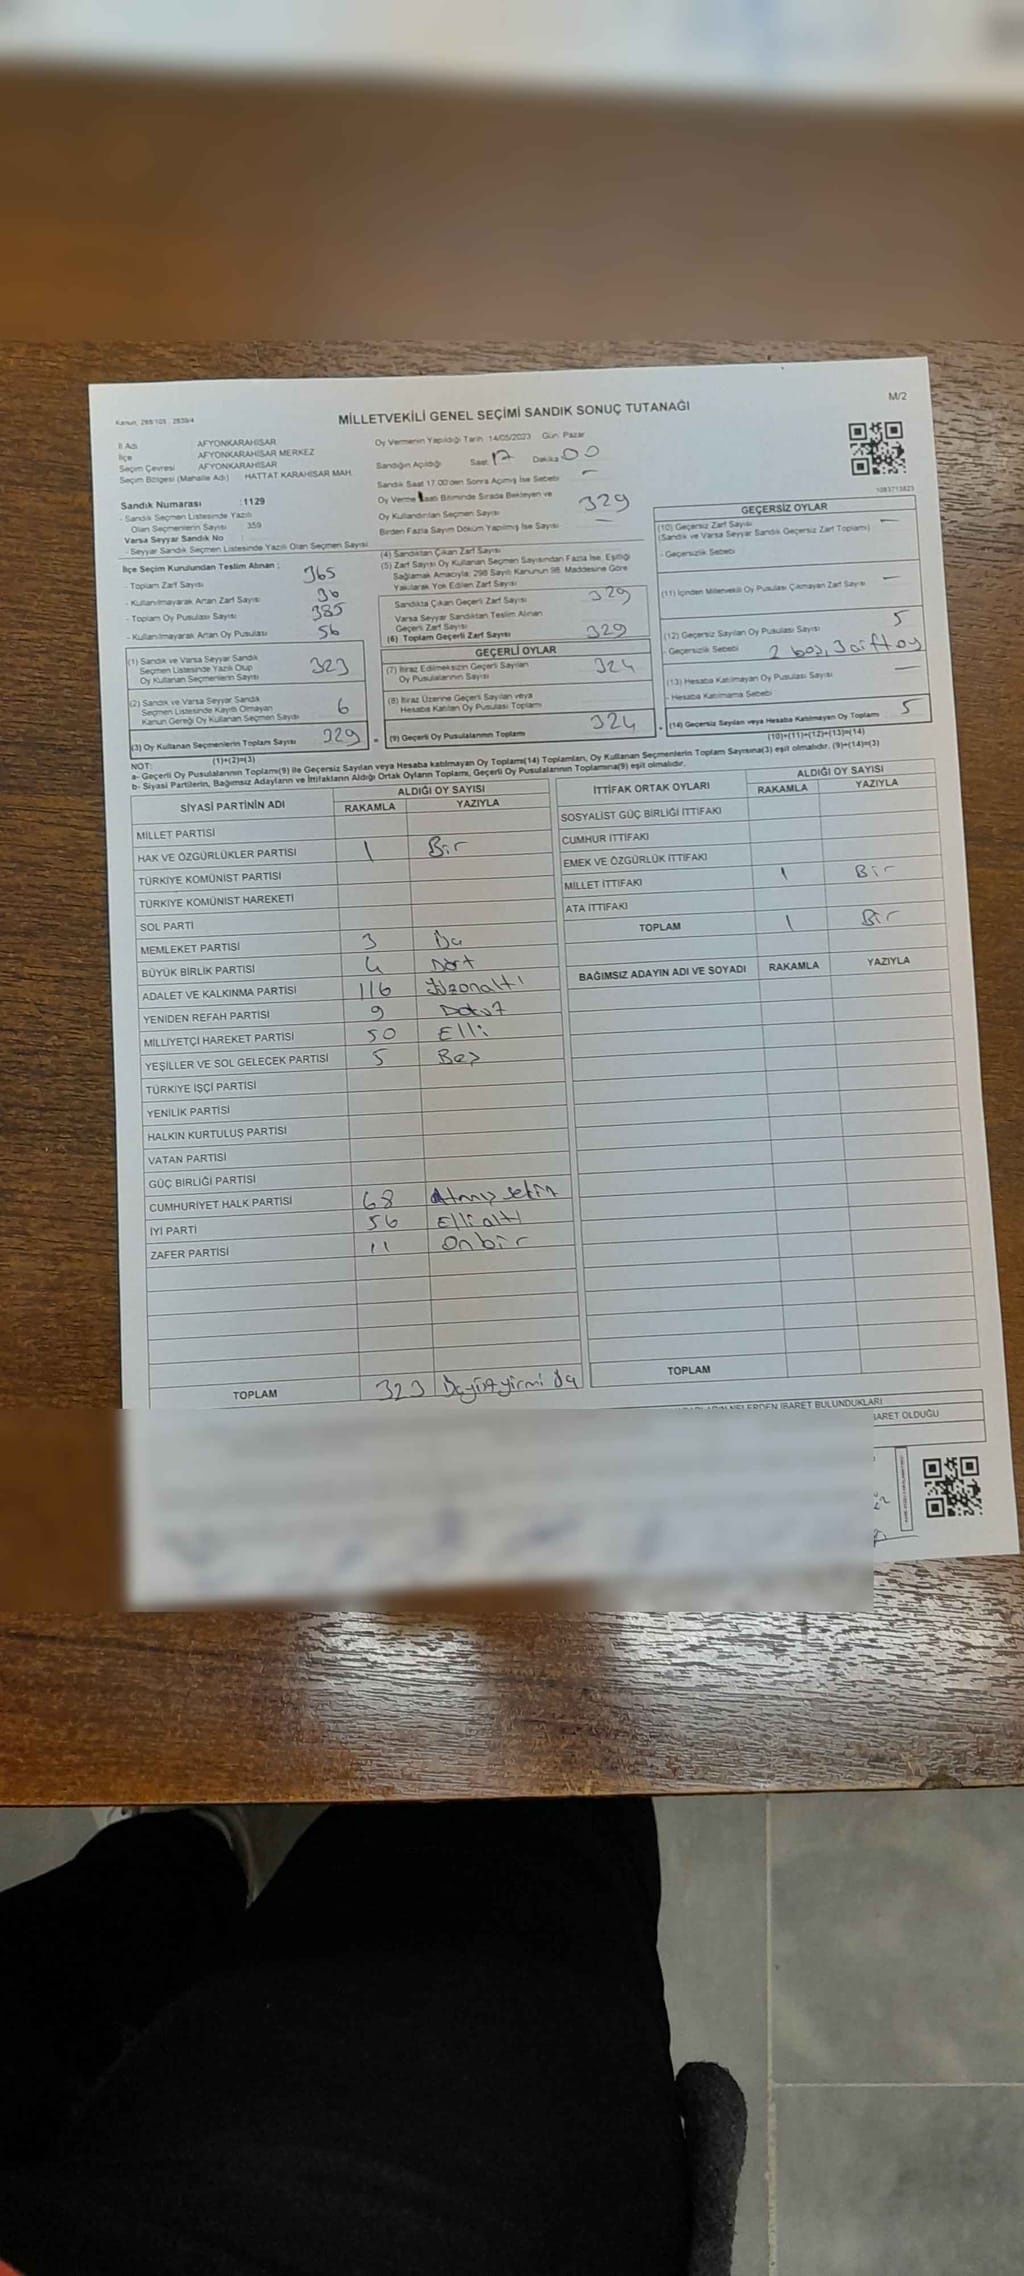 M/2
Kanun: 298/105 : 2839/4
MİLLETVEKİLİ GENEL SEÇİMİ SANDIK SONUÇ TUTANAĞI
İl Adı AFYONKARAHİSAR
İlçe AFYONKARAHİSAR MERKEZ
Seçim Çevresi AFYONKARAHİSAR
Seçim Bölgesi (Mahalle Adı) : HATTAT KARAHİSAR MAH.
Sandık Numarası : 1129
- Sandık Seçmen Listesinde Yazılı
Olan Seçmenlerin Sayısı 359
Varsa Seyyar Sandık No
- Seyyar Sandık Seçmen Listesinde Yazılı Olan Seçmen Sayısı
Oy Vermenin Yapıldığı Tarih :14/05/2023 Gün: Pazar
Sandığın Açıldığı Saat 17 Dakika 00
Sandık Saat 17.00'den Sonra Açılmış İse Sebebi –
Oy Verme Saati Bitiminde Sırada Bekleyen ve
Oy Kullandırılan Seçmen Sayısı 329
Birden Fazla Sayım Döküm Yapılmış İse Sayısı –
1083713823
İlçe Seçim Kurulundan Teslim Alınan :
- Toplam Zarf Sayısı 365
- Kullanılmayarak Artan Zarf Sayısı 36
- Toplam Oy Pusulası Sayısı 385
- Kullanılmayarak Artan Oy Pusulası 56
(1) Sandık ve Varsa Seyyar Sandık
Seçmen Listesinde Yazılı Olup
Oy Kullanan Seçmenlerin Sayısı 323
(2) Sandık ve Varsa Seyyar Sandık
Seçmen Listesinde Kayıtlı Olmayan
Kanun Gereği Oy Kullanan Seçmen Sayısı 6
(3) Oy Kullanan Seçmenlerin Toplam Sayısı 329
(1)+(2)=(3)
(4) Sandıktan Çıkan Zarf Sayısı
(5) Zarf Sayısı Oy Kullanan Seçmen Sayısından Fazla İse, Eşitliği
Sağlamak Amacıyla; 298 Sayılı Kanunun 98. Maddesine Göre
Yakılarak Yok Edilen Zarf Sayısı
Sandıkta Çıkan Geçerli Zarf Sayısı 329
Varsa Seyyar Sandıktan Teslim Alınan
Geçerli Zarf Sayısı
(6) Toplam Geçerli Zarf Sayısı 329
GEÇERLİ OYLAR
(7) İtiraz Edilmeksizin Geçerli Sayılan
Oy Pusulalarının Sayısı 324
(8) İtiraz Üzerine Geçerli Sayılan veya
Hesaba Katılan Oy Pusulası Toplamı
(9) Geçerli Oy Pusulalarının Toplamı 324
GEÇERSİZ OYLAR
(10) Geçersiz Zarf Sayısı
(Sandık ve Varsa Seyyar Sandık Geçersiz Zarf Toplamı) –
- Geçersizlik Sebebi
(11) İçinden Milletvekili Oy Pusulası Çıkmayan Zarf Sayısı –
(12) Geçersiz Sayılan Oy Pusulası Sayısı 5
- Geçersizlik Sebebi 2 boş, 3 çift oy
(13) Hesaba Katılmayan Oy Pusulası Sayısı –
- Hesaba Katılmama Sebebi
(14) Geçersiz Sayılan veya Hesaba Katılmayan Oy Toplamı 5
(10)+(11)+(12)+(13)=(14)
NOT:
a- Geçerli Oy Pusulalarının Toplamı(9) ile Geçersiz Sayılan veya Hesaba katılmayan Oy Toplamı(14) Toplamları, Oy Kullanan Seçmenlerin Toplam Sayısına(3) eşit olmalıdır. (9)+(14)=(3)
b- Siyasi Partilerin, Bağımsız Adayların ve İttifakların Aldığı Ortak Oyların Toplamı, Geçerli Oy Pusulalarının Toplamına(9) eşit olmalıdır.
SİYASİ PARTİNİN ADI ALDIĞI OY SAYISI
RAKAMLA YAZIYLA
MİLLET PARTİSİ
HAK VE ÖZGÜRLÜKLER PARTİSİ 1 Bir
TÜRKİYE KOMÜNİST PARTİSİ
TÜRKİYE KOMÜNİST HAREKETİ
SOL PARTİ
MEMLEKET PARTİSİ 3 Üç
BÜYÜK BİRLİK PARTİSİ 4 Dört
ADALET VE KALKINMA PARTİSİ 116 Yüzonaltı
YENİDEN REFAH PARTİSİ 9 Dokuz
MİLLİYETÇİ HAREKET PARTİSİ 50 Elli
YEŞİLLER VE SOL GELECEK PARTİSİ 5 Beş
TÜRKİYE İŞÇİ PARTİSİ
YENİLİK PARTİSİ
HALKIN KURTULUŞ PARTİSİ
VATAN PARTİSİ
GÜÇ BİRLİĞİ PARTİSİ
CUMHURİYET HALK PARTİSİ 68 Atmış sekiz
İYİ PARTİ 56 Elli altı
ZAFER PARTİSİ 11 Onbir
TOPLAM 323 Üçyüzyirmi üç
İTTİFAK ORTAK OYLARI ALDIĞI OY SAYISI
RAKAMLA YAZIYLA
SOSYALİST GÜÇ BİRLİĞİ İTTİFAKI
CUMHUR İTTİFAKI
EMEK VE ÖZGÜRLÜK İTTİFAKI
MİLLET İTTİFAKI 1 Bir
ATA İTTİFAKI
TOPLAM 1 Bir
BAĞIMSIZ ADAYIN ADI VE SOYADI RAKAMLA YAZIYLA
TOPLAM
NELERDEN İBARET BULUNDUKLARI
İBARET OLDUĞU